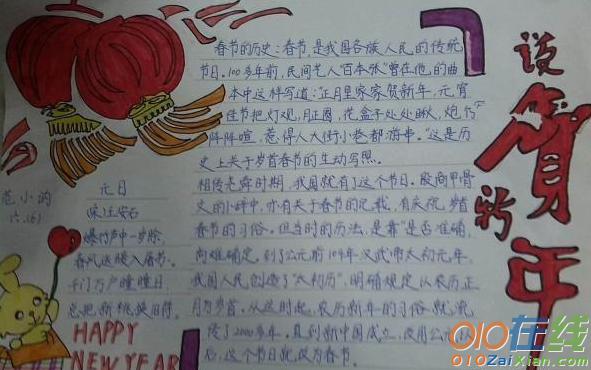 春节的历史：春节，是我国各族人民的传统
节日。100多年前，民间艺人"百本张"曾在他的曲
本中这样写道："正月里家家贺新年，元宵
佳节把灯观，月正圆，花盒子处处瞅，炮竹
阵阵喧，惹得人大街小巷都游串。"这是历
史上关于岁首春节的生动写照。
相传尧舜时期，我国就有了这个节日。殷商甲骨
文的小碎中，亦有关于春节的记载，有庆祝岁首
春节的习俗。但当时的历法，是靠"是否准确，
尚难确定。到了公元前104年汉武帝太初元年，
我国人民创造了"太初历"，明确规定以农历正
月为岁首。从这时起，农历新年的习俗就流
传了2000多年。直到新中国成立，改用公元
后，这个节日就改为春节。
说
贺
新
年
范小
六.(6)
元日
宋 王安石
爆竹声中一岁除，
春风送暖入屠苏。
千门万户曈曈日，
总把新桃换旧符。
HAPPY
NEW YEAR
010在线
010ZaiXian.com